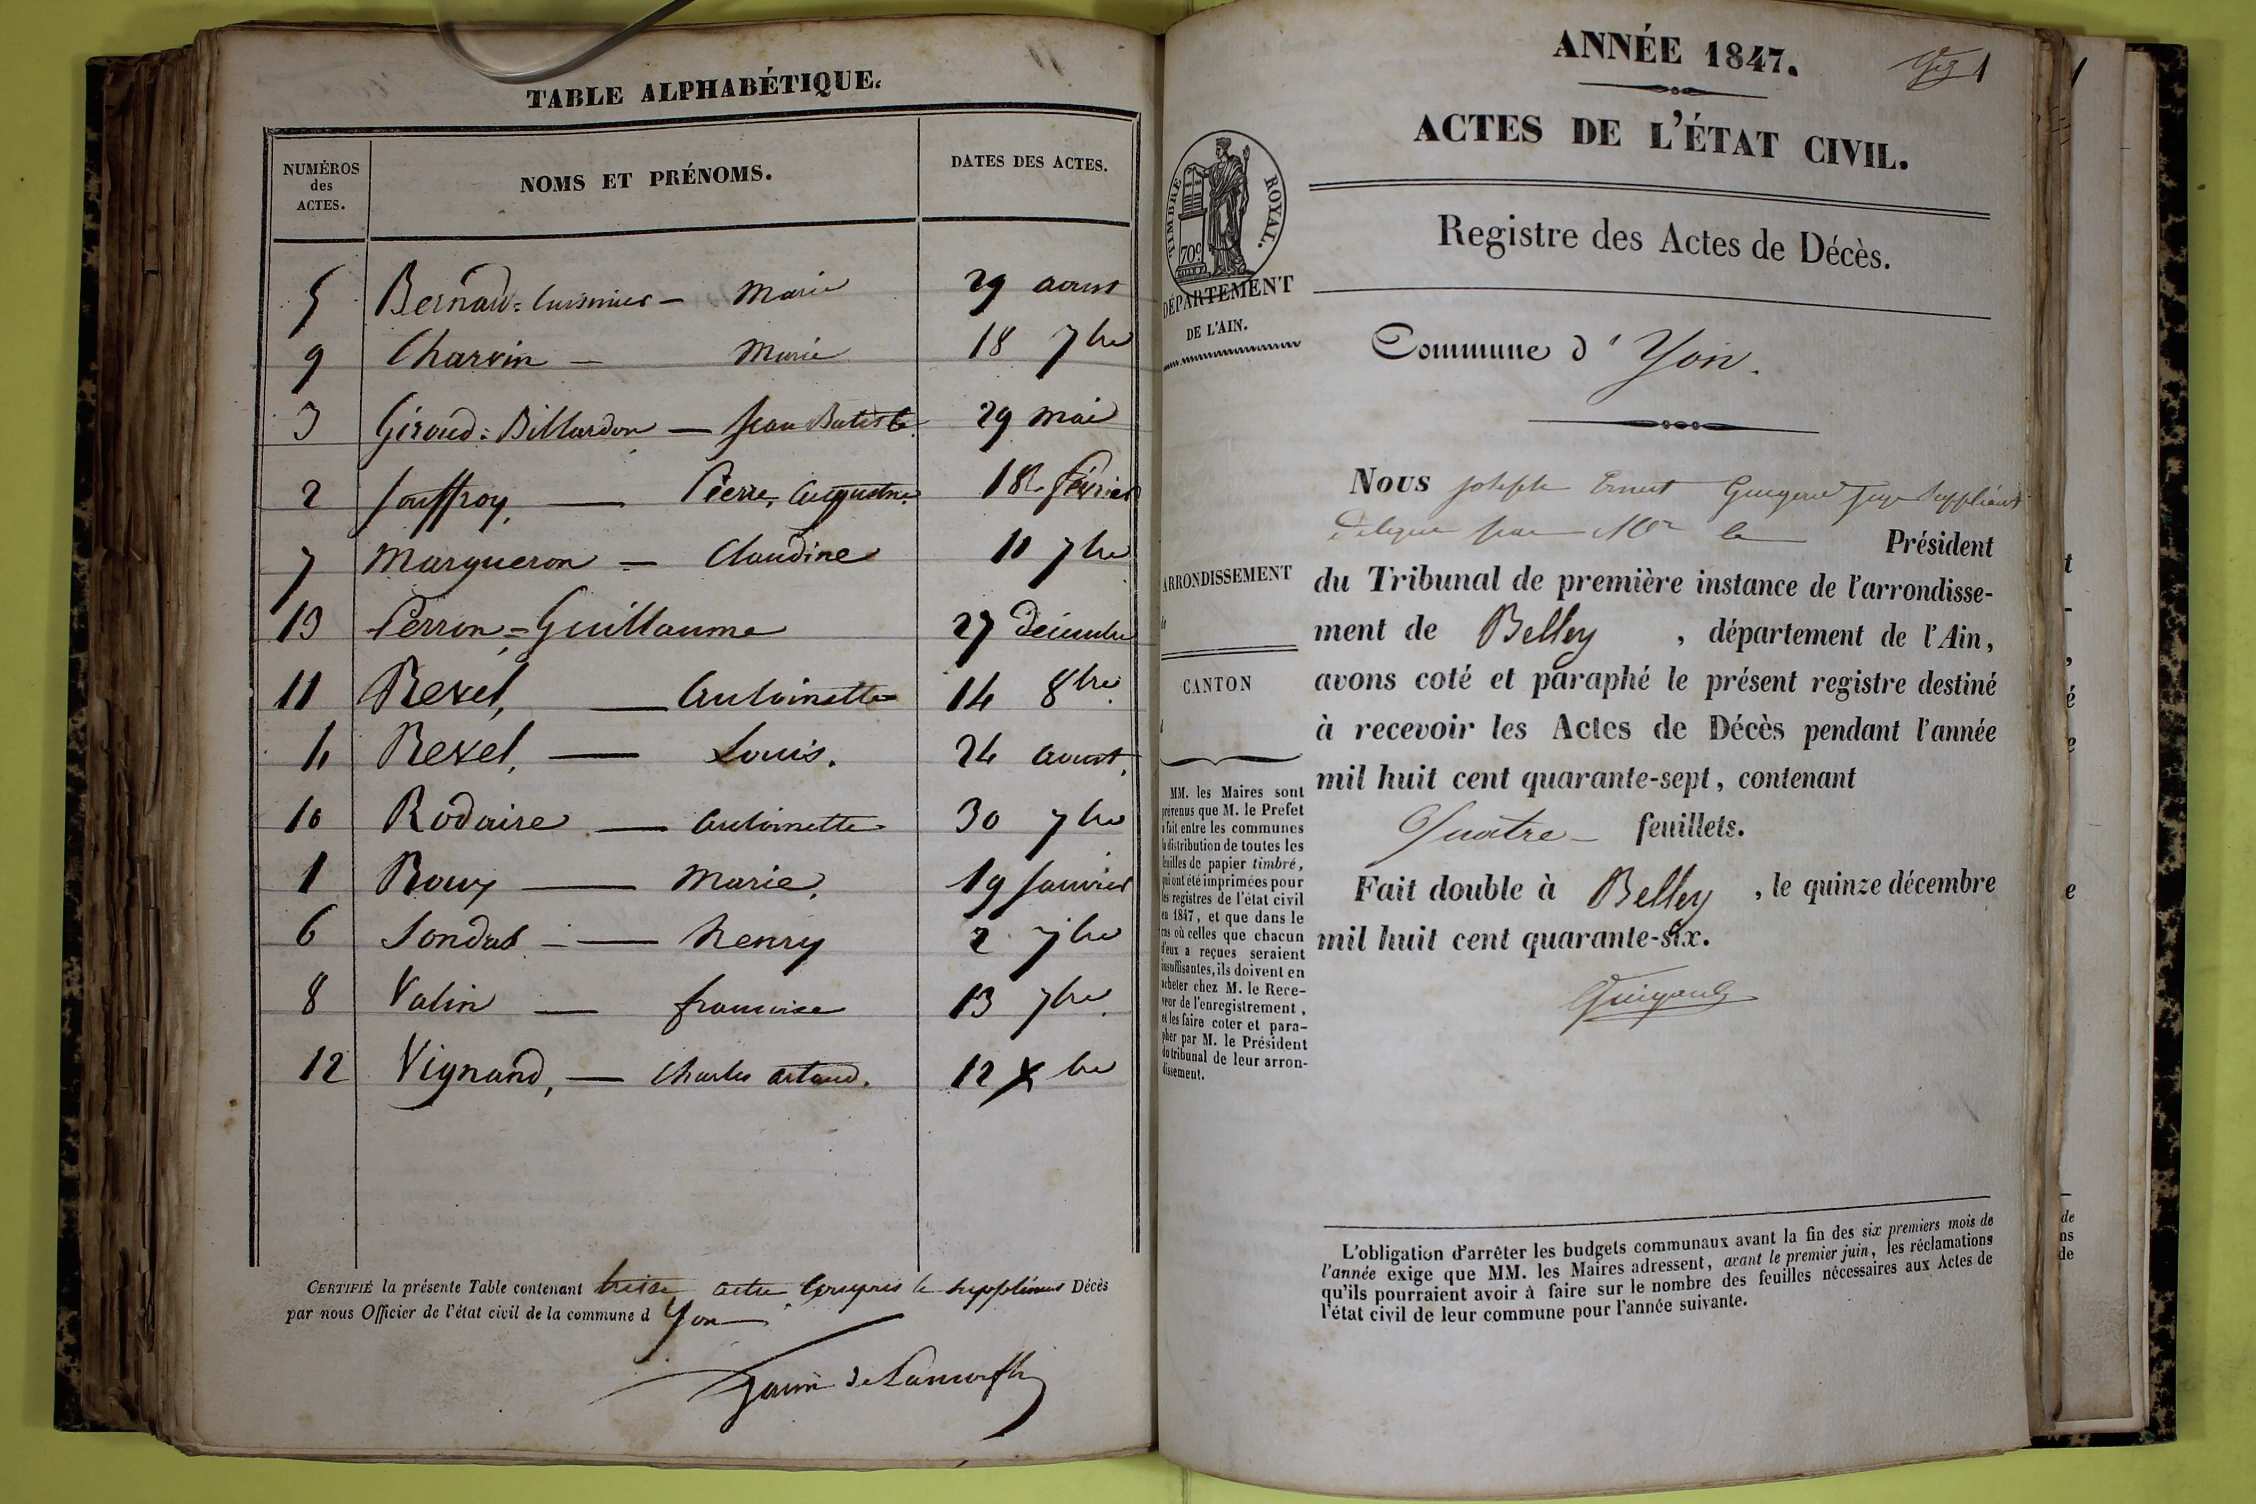 TABLE ALPHABÉTIQUE.
NUMÉROS
des
ACTES.
NOMS ET PRÉNOMS.
DATES DES ACTES.
5 Bernard = Cuisinier — Marie 29 aoust
9 Charvin — Marie 18 7bre
3 Giroud = Billardon — Jean Batiste 29 mai
2 Jouffroy, — Pierre, Augustin. 18 février
7 Margueron — Claudine 11 7bre
13 Perron = Guillaume 27 Décembre
11 Revel, — Antoinette 14 8bre.
4 Revel, — Louis. 24 aoust.
10 Rodaire — Antoinette 30 7bre
1 Roux — Marie. 19 Janvier
6 Sondas — henry 2 7bre
8 Valin — francoise 13 7bre.
12 Vignand, — Charles artaud. 12 Xbre
CERTIFIÉ la présente Table contenant treize actes compris le supplément Décès
par nous Officier de l'état civil de la commune d Yon
ANNÉE 1847.
1
ACTES DE L'ÉTAT CIVIL.
TIMBRE ROYAL.
70c
DÉPARTEMENT
DE L'AIN.
Registre des Actes de Décès.
Commune d' Yon.
Nous Joseph Ernest juge suppléant
délégué par Mr le Président
du Tribunal de première instance de l'arrondisse-
ment de Belley, département de l'Ain,
avons coté et paraphé le présent registre destiné
à recevoir les Actes de Décès pendant l'année
mil huit cent quarante-sept, contenant
Quatre feuillets.
Fait double à Belley, le quinze décembre
mil huit cent quarante-six.
ARRONDISSEMENT
CANTON
MM. les Maires sont
prévenus que M. le Prefet
a fait entre les communes
la distribution de toutes les
feuilles de papier timbré,
qui ont été imprimées pour
les registres de l'état civil
en 1847, et que dans le
cas où celles que chacun
d'eux a reçues seraient
insuffisantes, ils doivent en
acheter chez M. le Rece-
veur de l'enregistrement,
et les faire coter et para-
pher par M. le Président
du tribunal de leur arron-
dissement.
L'obligation d'arrêter les budgets communaux avant la fin des six premiers mois de
l'année exige que MM. les Maires adressent, avant le premier juin, les réclamations
qu'ils pourraient avoir à faire sur le nombre des feuilles nécessaires aux Actes de
l'état civil de leur commune pour l'année suivante.